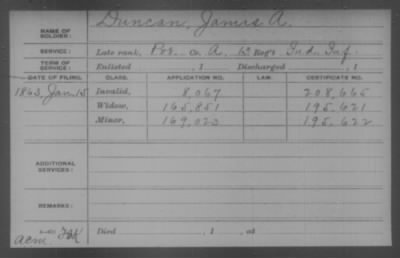 NAME OF SOLDIER: Duncan, James A.
SERVICE: Late rank, Pvt. Co. A, 12 Reg't Ind. Inf.
TERM OF SERVICE: Enlisted , 1 Discharged , 1
DATE OF FILING. CLASS. APPLICATION NO. LAW. CERTIFICATE NO.
1863, Jan. 15 Invalid, 8,067 208,665
Widow, 165,851 195,621
Minor, 169,023 195,622
ADDITIONAL SERVICES:
REMARKS:
Died , 1 , at
acm